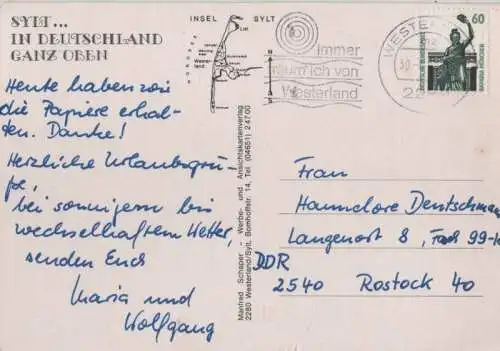 SYLT...
IN DEUTSCHLAND
GANZ OBEN
Heute haben wir
die Papiere erhal-
ten. Danke!
Herzliche Urlaubsgrü-
ße,
bei sonnigem bis
wechselhaftem Wetter,
senden Euch
Maria und
Wolfgang
INSEL SYLT
NORDSEE
List
Wester-
land
Manfred Schaper - Werbe- und Ansichtskartenverlag
2280 Westerland/Sylt, Bomhoffstr. 14, Tel. (04651) 2 47 00
immer
träum ich von
Westerland
WESTER
60
DEUTSCHE BUNDESPOST
BAVARIA MÜNCHEN
Frau
Hannelore Deutschman
Langenort 8, 99-
DDR
2540 Rostock 40